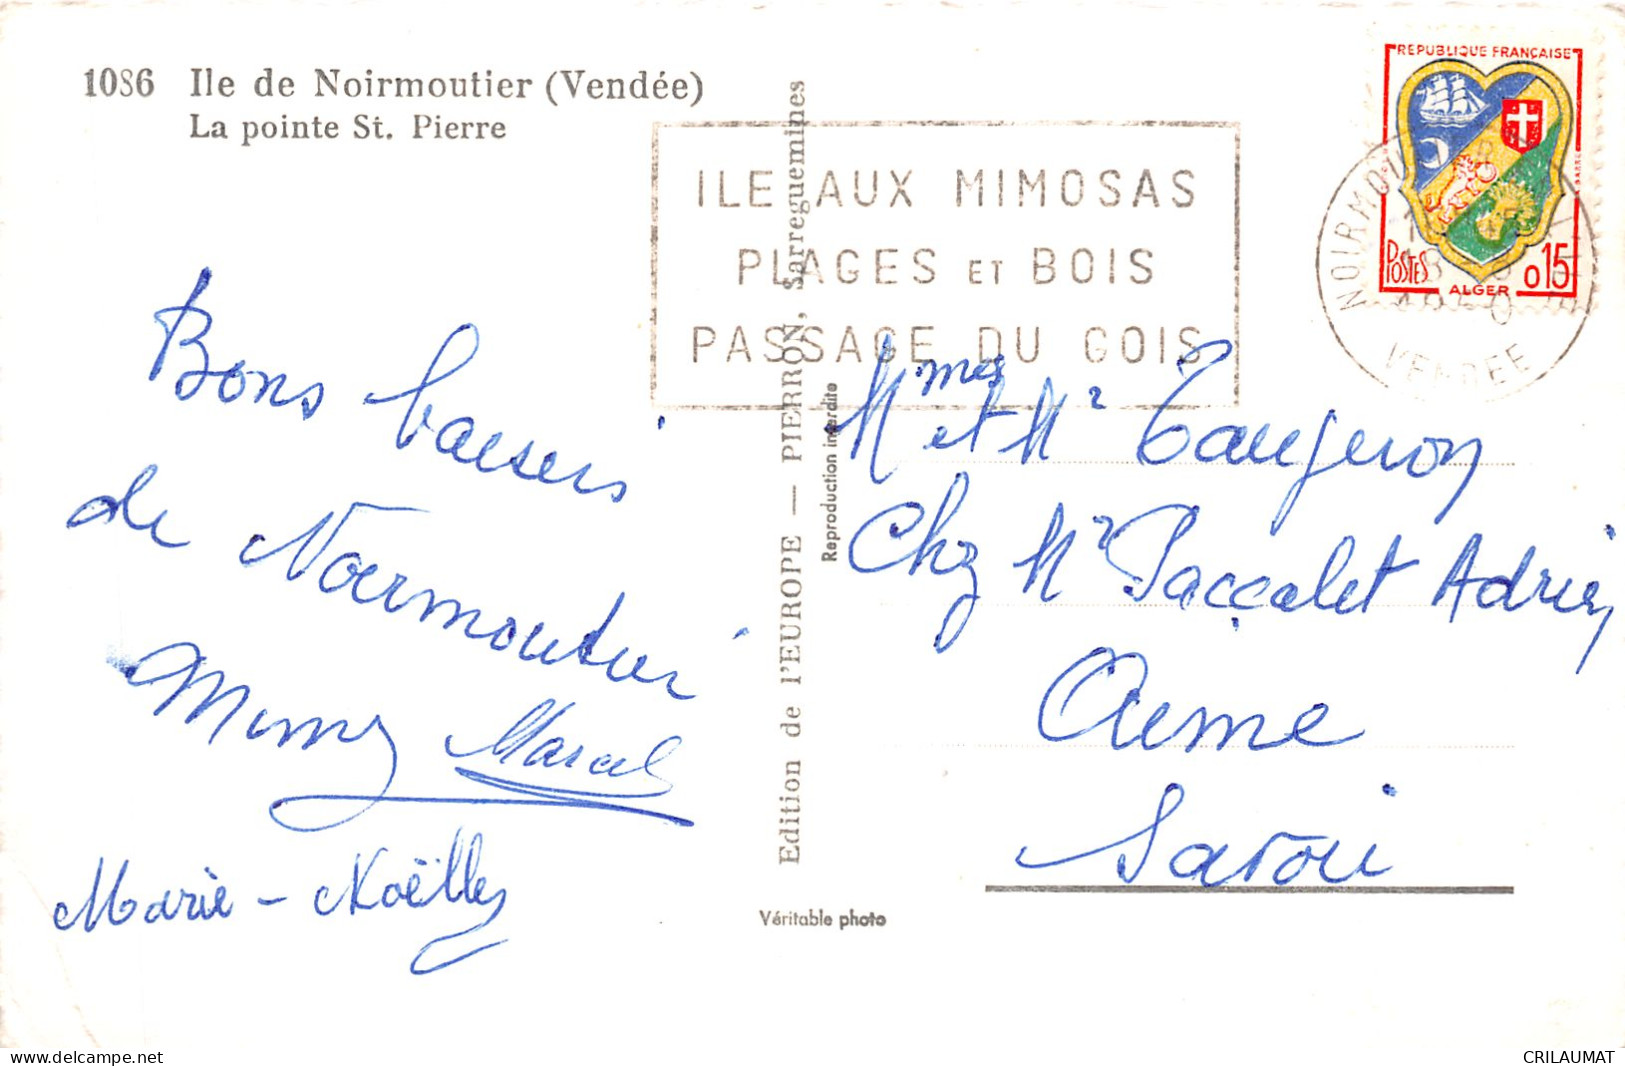 1086 Ile de Noirmoutier (Vendée)
La pointe St. Pierre
ILE AUX MIMOSAS
PLAGES ET BOIS
PASSAGE DU GOIS
REPUBLIQUE FRANÇAISE
POSTES 0,15
ALGER
NOIRMOUTIER
VENDEE
Bons baisers
de Noirmoutier
Mimy Marcel
Marie-Noëlle
Edition de l'EUROPE — PIERRON, Sarreguemines
Reproduction interdite
Véritable photo
Mmes et Mr Taugeron
Chz Mr Paccalet Adrien
Aime
Savoie
delcampe.net
CRILAUMAT